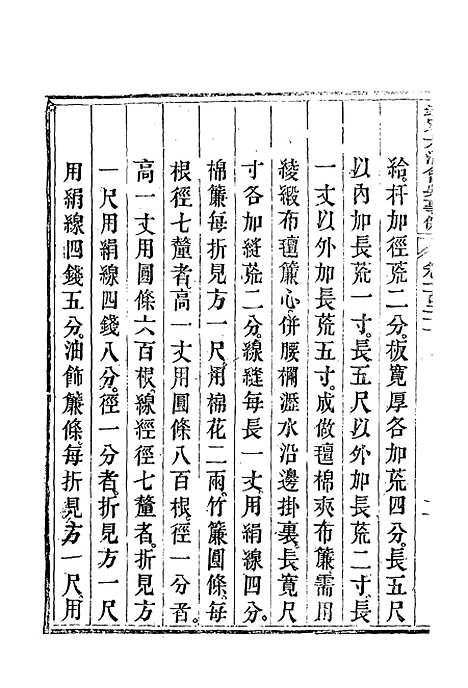 給。杆加徑荒二分。板寬厚各加荒四分。長五尺
以內加長荒一寸。長五尺以外加長荒二寸。長
一丈以外加長荒五寸。成做氊棉夾布簾需用
綾緞布氊簾心。併腰欄瀝水沿邊掛裏。長寬尺
寸各加縫荒二分。線縫每長一丈。用絹線四分。
棉簾每折見方一尺。用棉花二兩。竹簾圓條。每
根徑七釐者。高一丈用圓條八百根。徑一分者。
高一丈用圓條六百根。線經徑七釐者。折見方
一尺用絹線四錢八分。徑一分者。折見方一尺
用絹線四錢五分。油飾簾條。每折見方一尺。用